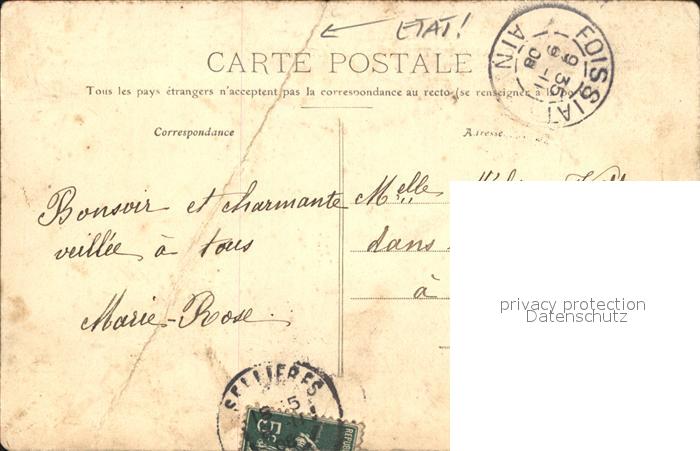 ETAT!
CARTE POSTALE
Tous les pays étrangers n'acceptent pas la correspondance au recto (se renseigner à la
Correspondance
Adresse
FOISSIAT
9 35
9 -11
08
AIN
Bonsoir et charmante
veillée à tous
Marie-Rose.
Melle
dans
à
privacy protection
Datenschutz
SELLIERES